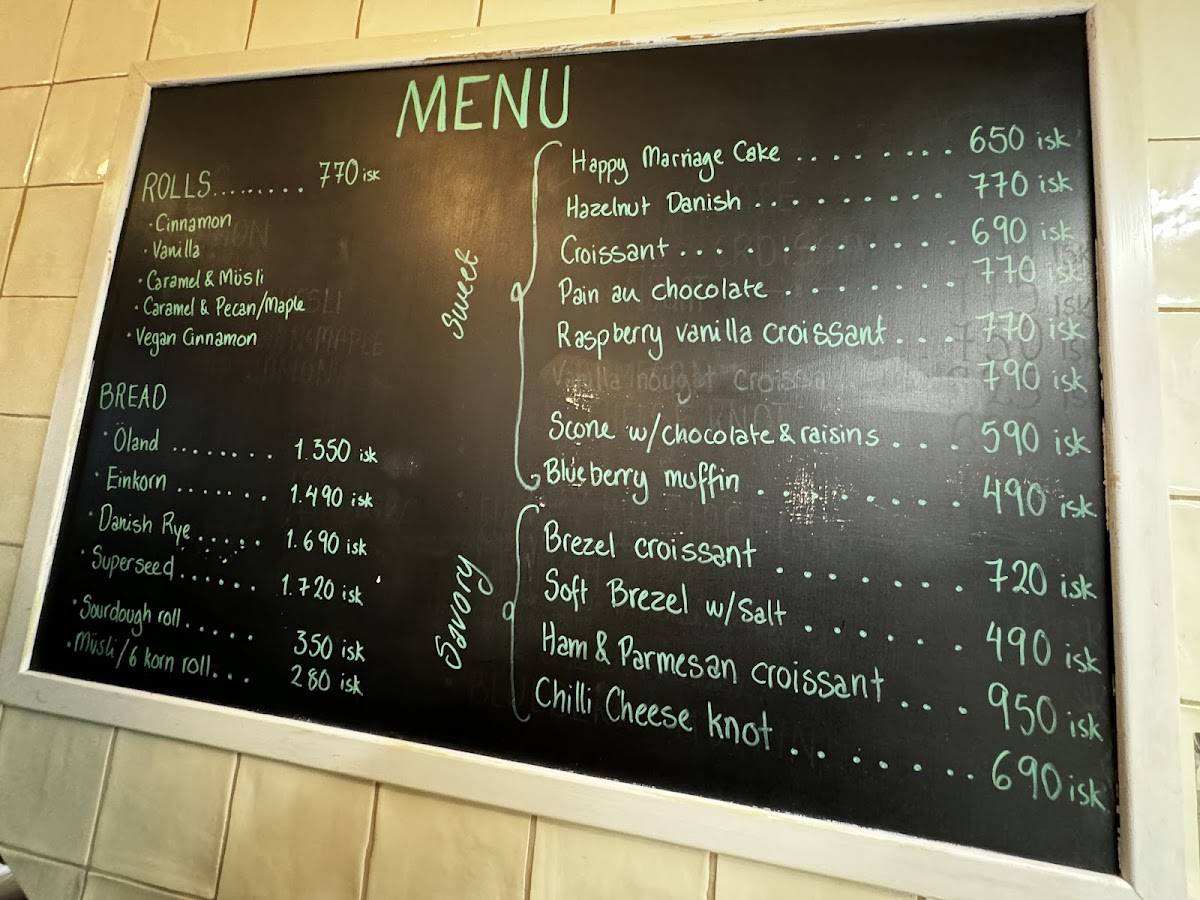 MENU
ROLLS........ 770 isk
· Cinnamon
· Vanilla
· Caramel & Müsli
· Caramel & Pecan/Maple
· Vegan Cinnamon
BREAD
· Öland ........ 1.350 isk
· Einkorn ....... 1.490 isk
· Danish Rye ..... 1.690 isk
· Superseed...... 1.720 isk
· Sourdough roll..... 350 isk
· Müsli/6 korn roll... 280 isk
Sweet
Happy Marriage Cake ........ 650 isk
Hazelnut Danish .......... 770 isk
Croissant ............ 690 isk
Pain au chocolate ....... 770 isk
Raspberry vanilla croissant ... 770 isk
Vanilla nougat croissa 790 isk
Scone w/chocolate & raisins ... 590 isk
Blueberry muffin ........ 490 isk
Savory
Brezel croissant ....... 720 isk
Soft Brezel w/Salt ...... 490 isk
Ham & Parmesan croissant ... 950 isk
Chilli Cheese knot ....... 690 isk